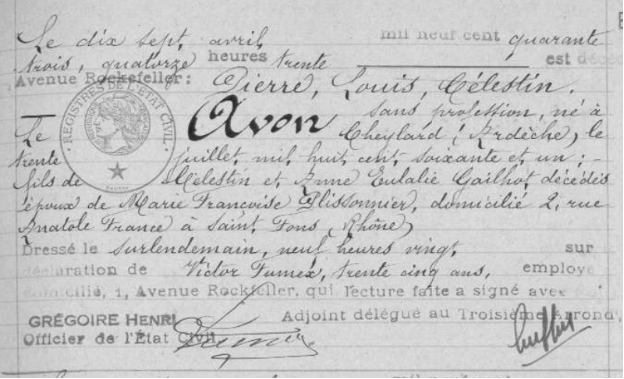 Le dix sept avril mil neuf cent quarante
trois, quatorze heures trente est décé
Avenue Rockefeller: Pierre, Louis, Célestin.
REGISTRES DE L'ETAT CIVIL
Avon sans profession, né à
Le Cheylard (Ardèche) le
trente juillet mil huit cent soixante et un ; -
fils de Célestin et Anne Eulalie Gailhot, décédés
époux de Marie Francoise Plissonnier, domicilié 2, rue
Anatole France à Saint Fons (Rhône)
Dressé le surlendemain, neuf heures vingt, sur
déclaration de Victor Fumex, trente cinq ans, employé
domicilié, 1, Avenue Rockfeller, qui lecture faite a signé avec
GRÉGOIRE HENRI Adjoint délégué au Troisième Arrond
Officier de l'État Civil